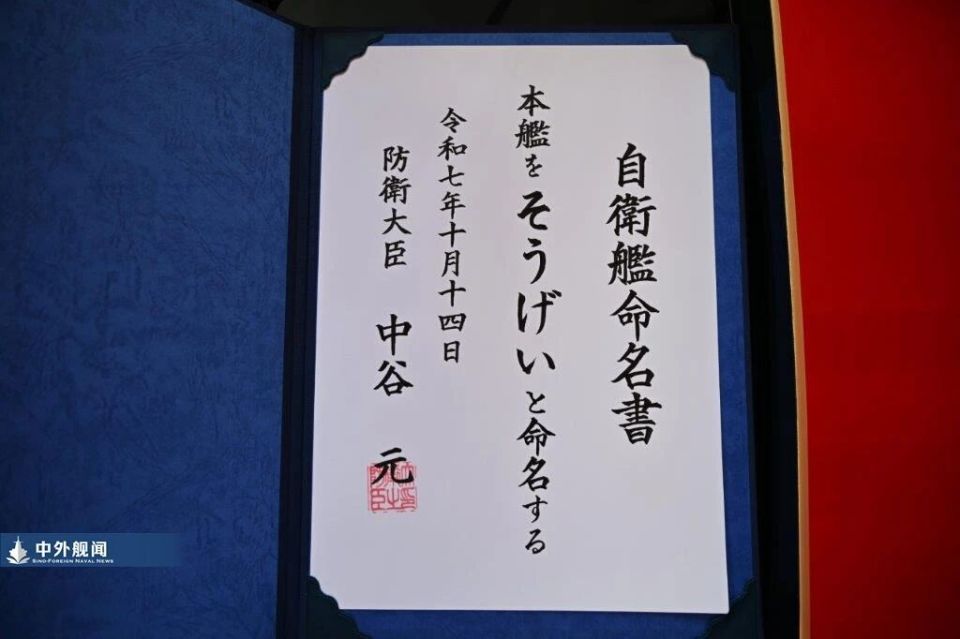 自衛艦命名書
本艦をそうげいと命名する
令和七年十月十四日
防衛大臣 中谷 元
中外舰闻
SINO-FOREIGN NAVAL NEWS